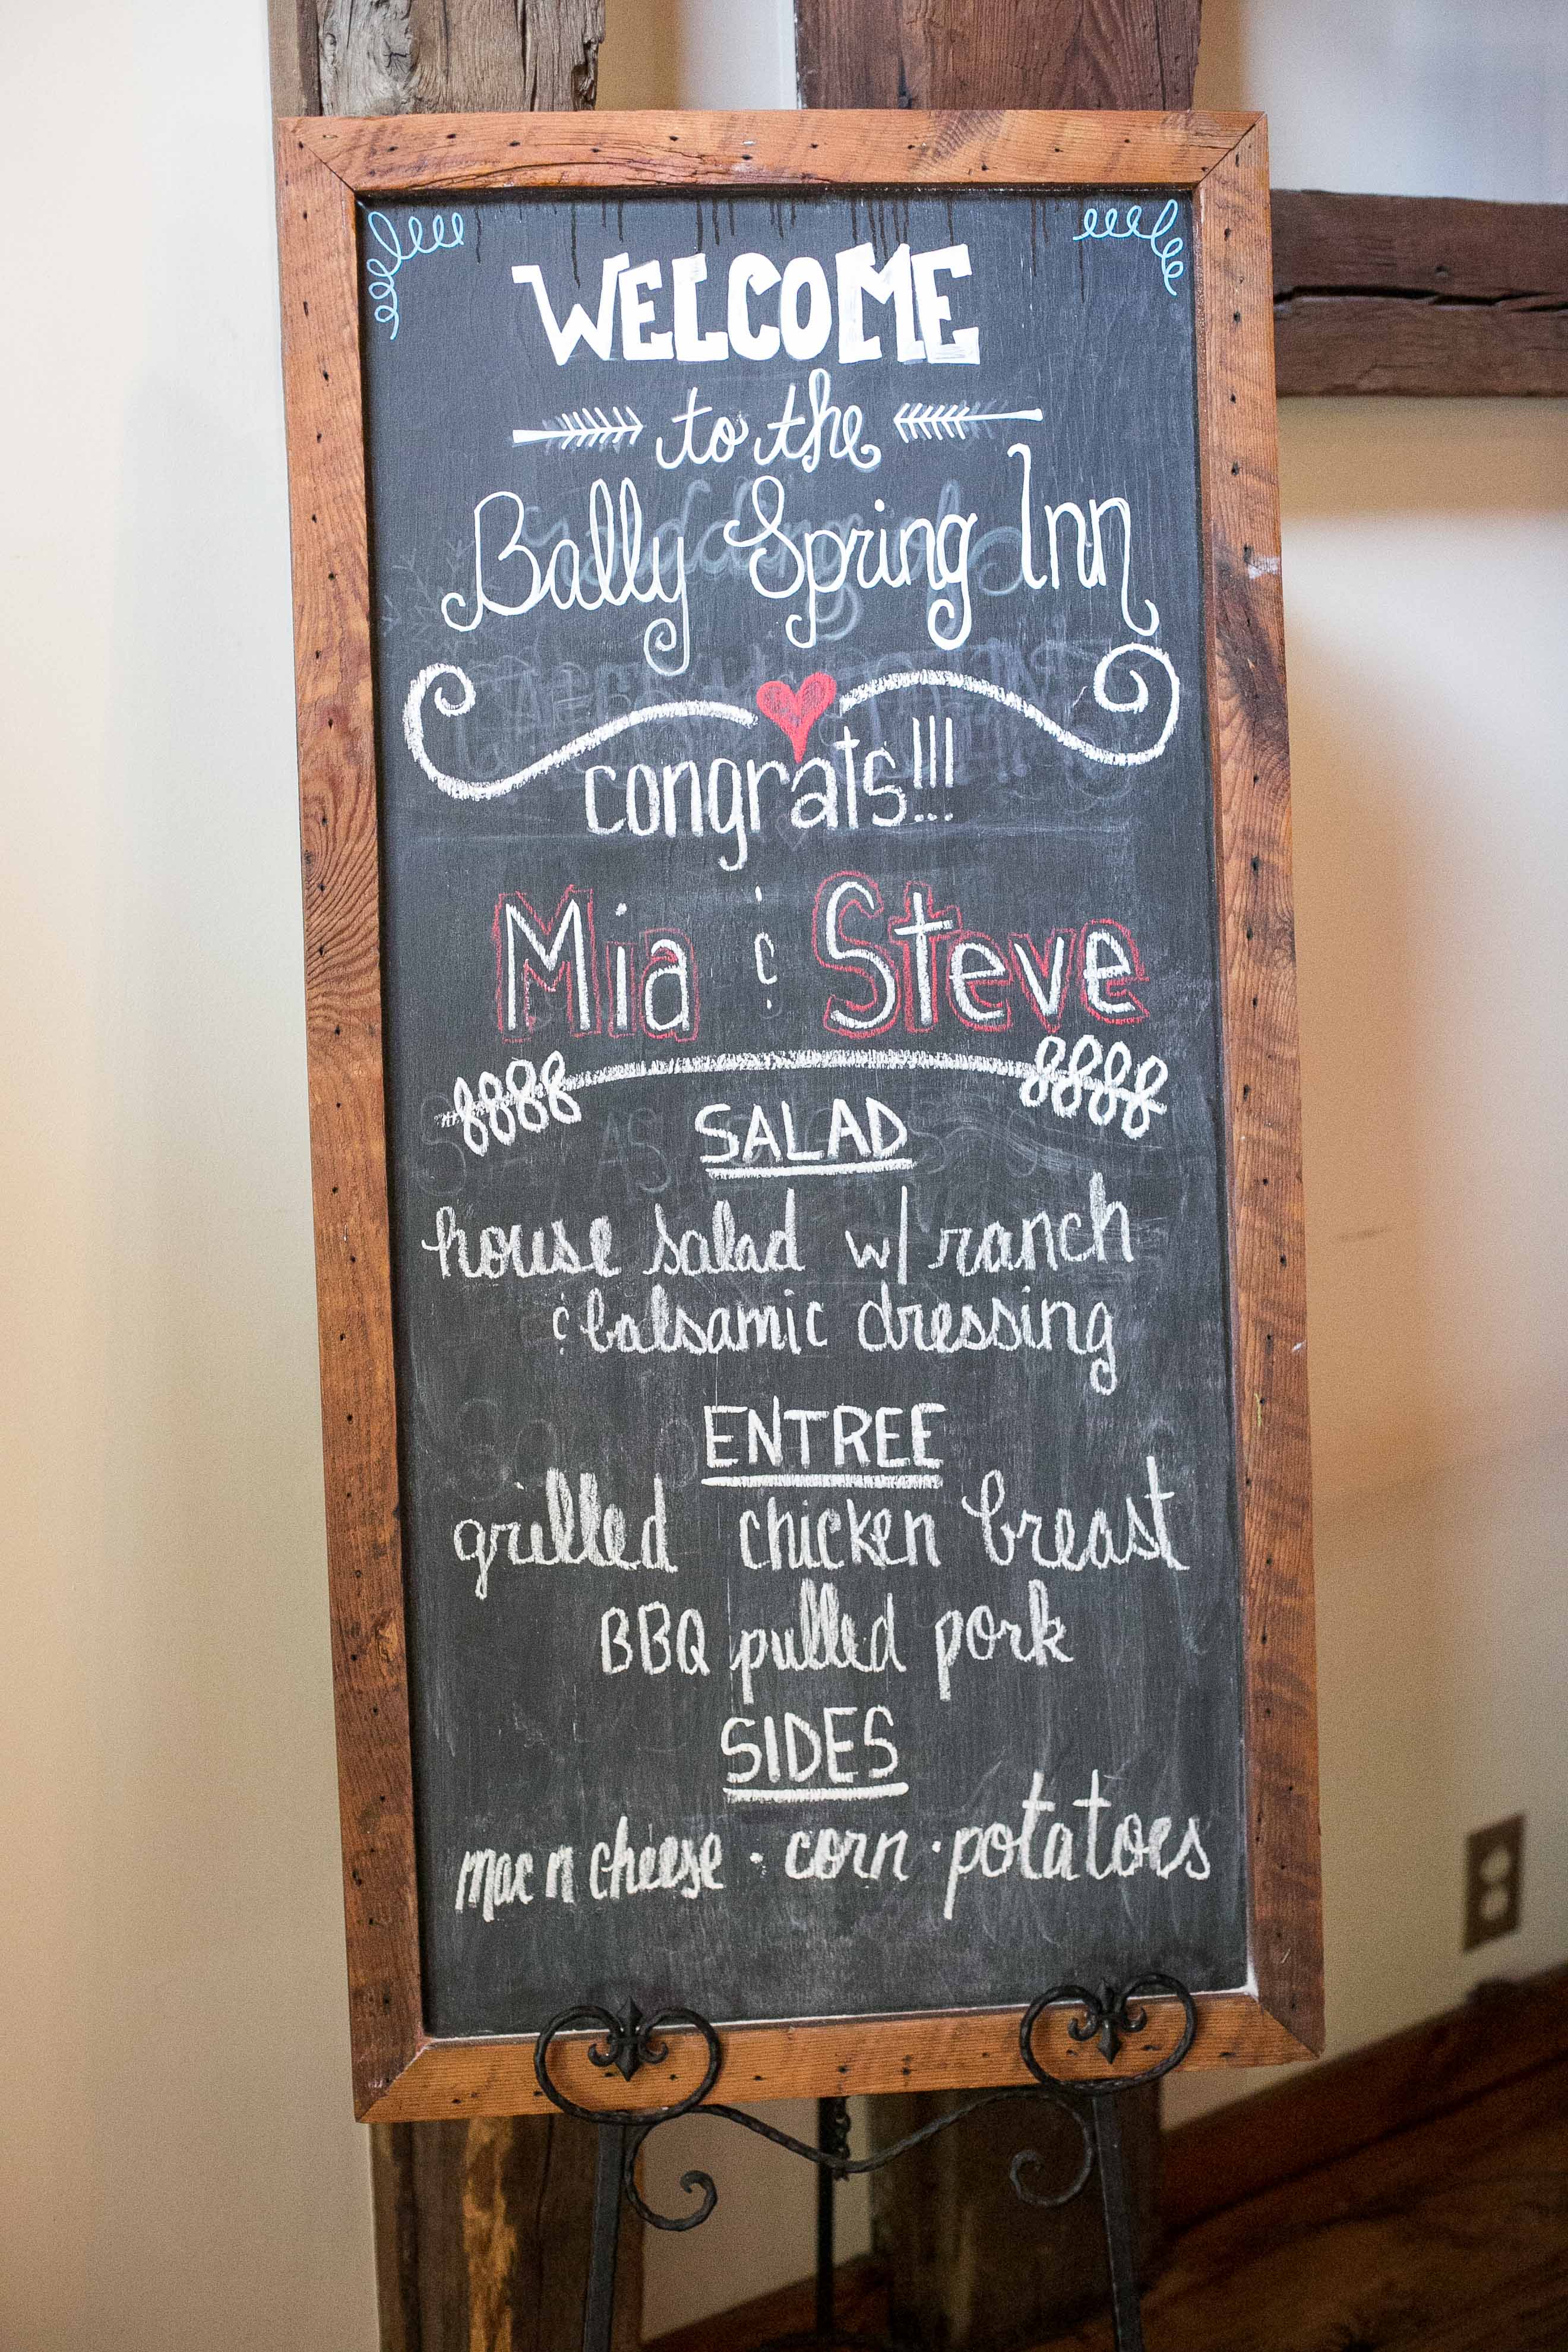 WELCOME
to the
Bally Spring Inn
congrats!!!
Mia & Steve
SALAD
house salad w/ ranch
& balsamic dressing
ENTREE
grilled chicken breast
BBQ pulled pork
SIDES
mac n cheese · corn · potatoes